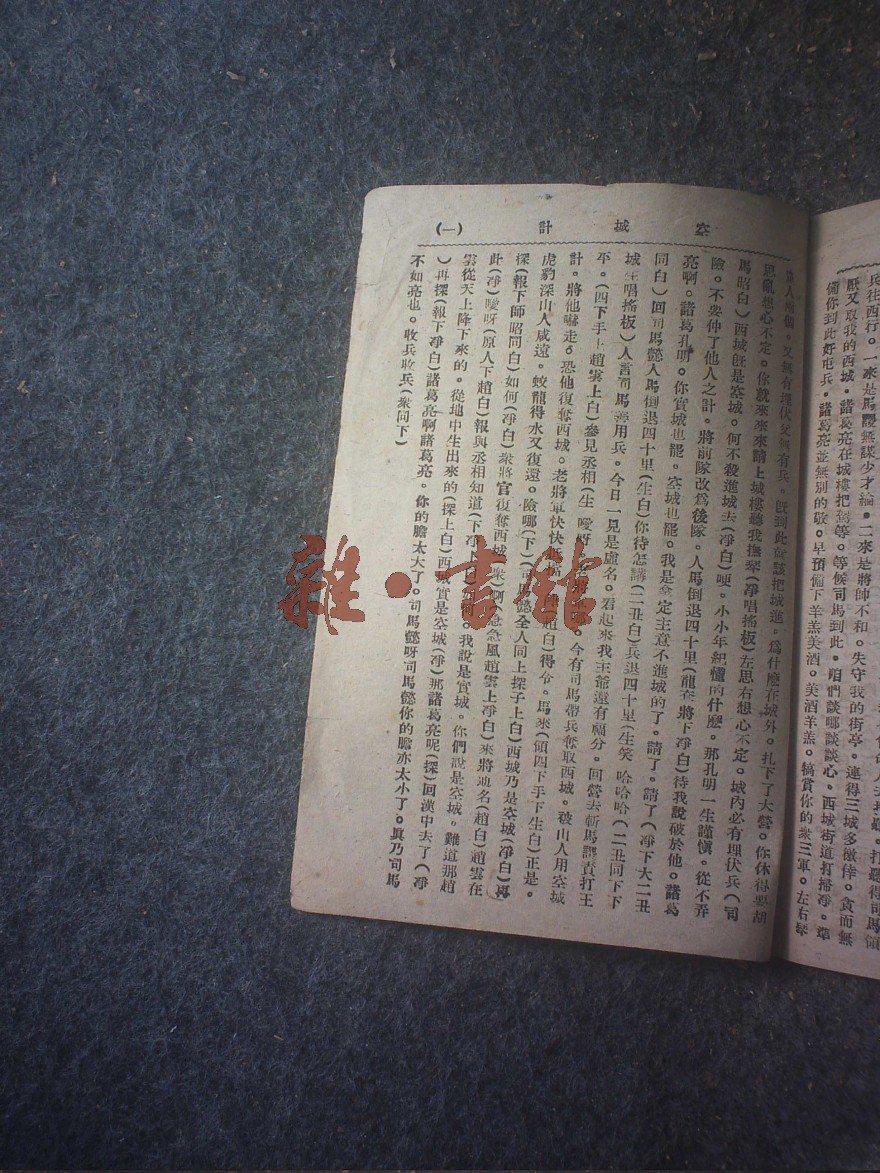 兵往西行。一來是馬謖無謀少才論。二來是將帥不和。失守我的街亭。連得三城多儌倖。貪而無
厭又取我的西城。諸葛亮在城樓把駕等。等候司馬到此。咱們談哪談談心。西城街道打掃淨。準
備你到此好屯兵。諸葛亮並無別的敬。早預備下羊羔美酒。美酒羊羔。犒賞你的衆三軍。左右琴
空城計
(一)
人 又無有埋伏又無有兵。旣到此就該把城進。爲什麽在城外。扎下了大營。你休得要胡
思亂想心不定。你就來來來請上城樓聽我撫琴(淨唱搖板)左思右想心不定。城內必有埋伏兵(司
馬昭白)西城旣是空城。何不殺進城去(淨白)哽。小小年紀懂的什麽。那孔明一生謹愼。從不弄
險。不要仲了他人之計。將前隊改爲後隊。人馬倒退四十里(龍套將下淨白)待我說破於他。諸葛
亮啊。諸葛孔明。你實城也罷。空城也罷。我是拿定主意不進城的了。請了。請了(淨下大二丑
同白)回司馬懿人馬倒退四十里(生白)你待怎講(二丑白)兵退四十里(生笑 哈哈哈(二丑同下下
城生唱搖板)人言司馬善用兵。今日一見是虛名。看起來我主爺還有福分。回營去斬馬謖責打王
平。(四下手上趙雲上白)參見丞相(生 噯呀老將軍哪。今有司馬帶兵奪取西城。被山人用空城
計。將他嚇走。恐他復奪西城。老將軍快快 趙白)得令。馬來(領四下手下生白)正是。
虎豹深山人咸遠。蛟龍得水又復還。險哪(下)(司馬懿全人同上探子上白)西城乃是空城(淨白)再
探(報下師昭問白)如何(淨白)衆將官復奪西城(衆)啊(急急風趙雲上淨白)來將通名(趙白)趙雲在
此(淨)噯呀(原人下趙白)報與丞相知道(下淨上白)如何。我說是實城。你們說是空城。難道那趙
雲從天上降下來的。從地中生出來的(探上白)西城實是空城(淨)那諸葛亮呢(探)回漢中去了(淨
)再探(報下淨白)諸葛亮啊諸葛亮。你的膽太大了。司馬懿呀司馬懿你的膽亦太小了。眞乃司馬
不如亮也。收兵收兵(衆同下)
雜·書館